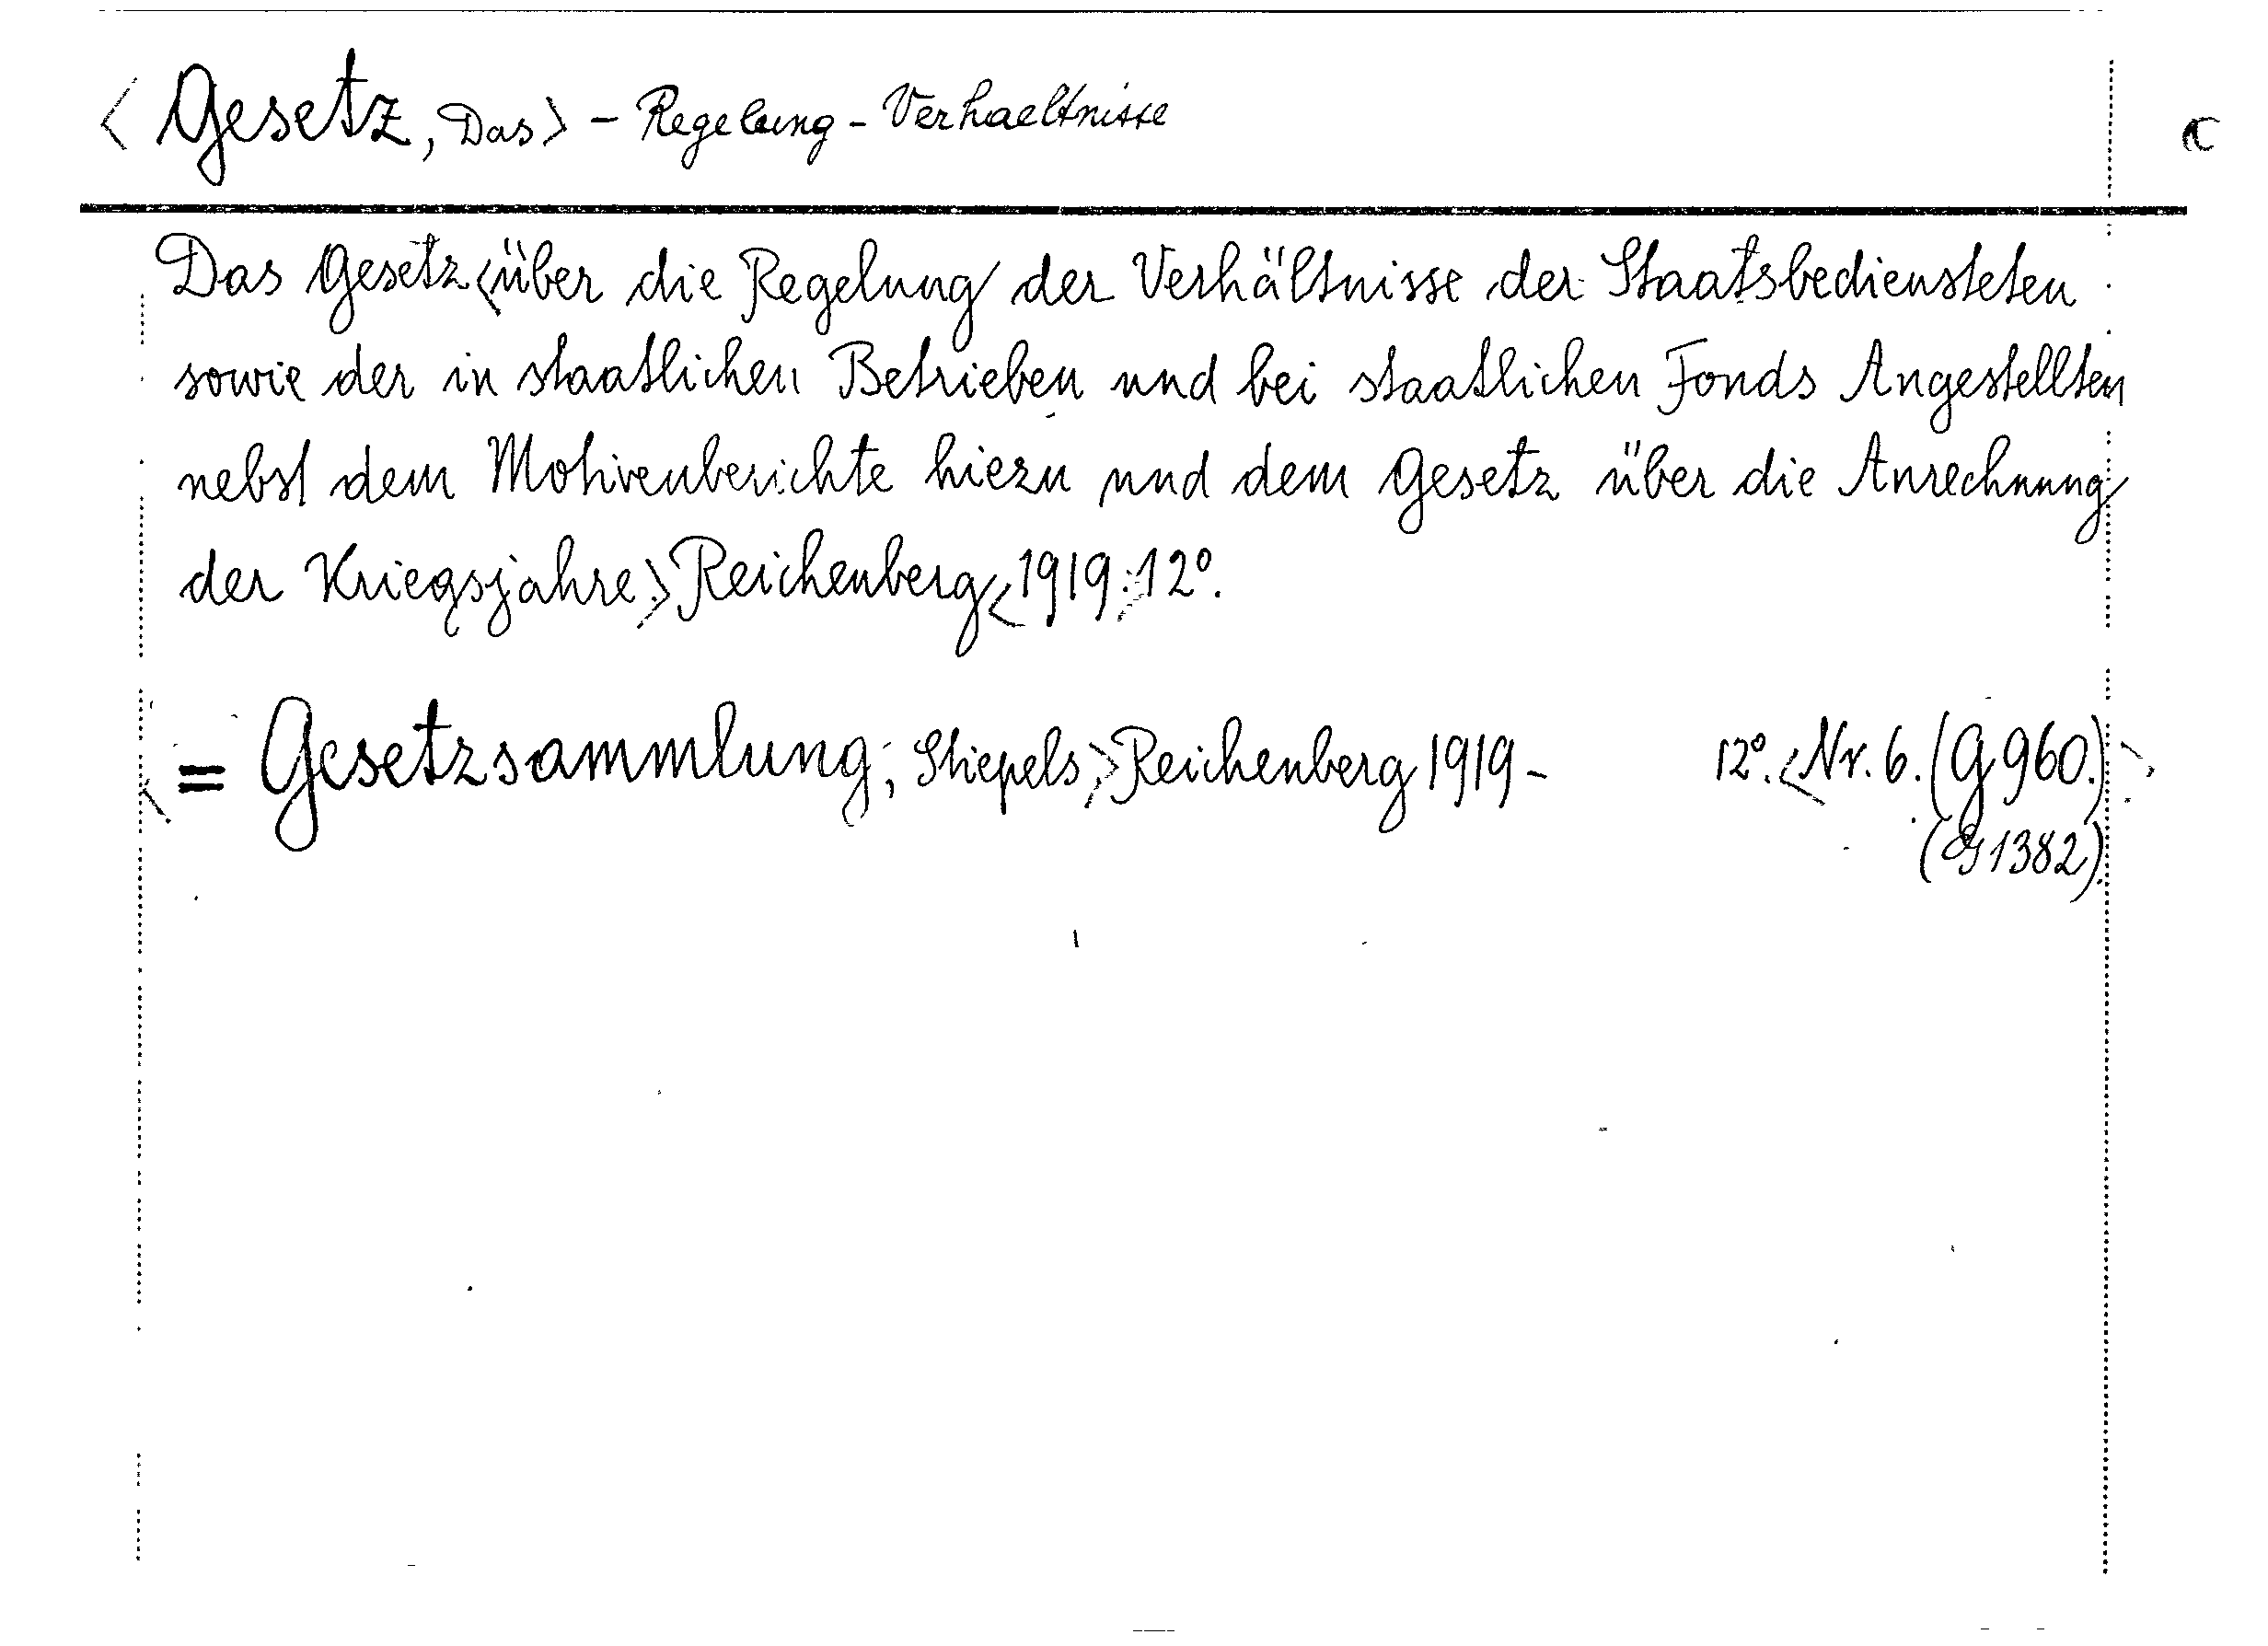 <Gesetz, Das> - Regelung - Verhaeltnisse
Das Gesetz <über die Regelung der Verhältnisse der Staatsbediensteten
sowie der in staatlichen Betrieben und bei staatlichen Fonds Angestellten
nebst dem Motivenberichte hiezu und dem Gesetz über die Anrechnung
der Kriegsjahre.> Reichenberg <1919.> 12°.
<= Gesetzsammlung, Stiepels,> Reichenberg 1919- 12°. <Nr. 6. (G 960.)>
(G 1382)